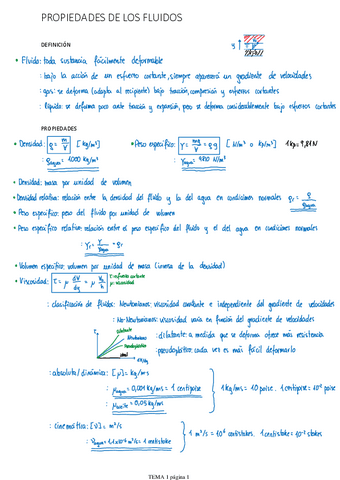 PROPIEDADES DE LOS FLUIDOS
DEFINICIÓN
• Fluido: toda sustancia fácilmente deformable
: bajo la acción de un esfuerzo cortante, siempre aparecerá un gradiente de velocidades
: gas: se deforma (adapta al recipiente) bajo tracción, compresión y esfuerzos cortantes
: líquido: se deforma poco ante tracción y expansión, pero se deforma considerablemente bajo esfuerzos cortantes
PROPIEDADES
• Densidad: ρ = m/V [kg/m³] • Peso específico: γ = mg/V = ρg [N/m³ o kp/m³] 1kp = 9,8 N
: ρagua = 1000 kg/m³ : γagua = 9810 N/m³
• Densidad: masa por unidad de volumen
• Densidad relativa: relación entre la densidad del fluido y la del agua en condiciones normales ρr = ρ/ρagua
• Peso específico: peso del fluido por unidad de volumen
• Peso específico relativo: relación entre el peso específico del fluido y el del agua en condiciones normales
: γr = γ/γagua = ρr
• Volumen específico: volumen por unidad de masa (inversa de la densidad)
• Viscosidad: τ = μ dV/dy = μ V₀/h τ: esfuerzo cortante
μ: viscosidad
: clasificación de fluidos: Newtonianos: viscosidad constante e independiente del gradiente de velocidades
: No Newtonianos: viscosidad varía en función del gradiente de velocidades
Dilatante
Newtoniano
Pseudoplástico
Ideal
: dilatante: a medida que se deforma ofrece más resistencia
: pseudoplástico: cada vez es más fácil deformarlo
: absoluta/dinámica: [μ] = kg/ms
: μagua = 0,001 kg/ms = 1 centipoise
1 kg/ms = 10 poise. 1 centipoise = 10⁻² poise
: μaceite = 0,05 kg/ms
: cinemática: [ν] = m²/s
1 m²/s = 10⁶ centistokes. 1 centistoke = 10⁻² stokes
: νagua = 1,1×10⁻⁶ m²/s = 1 centistoke
TEMA 1 página 1